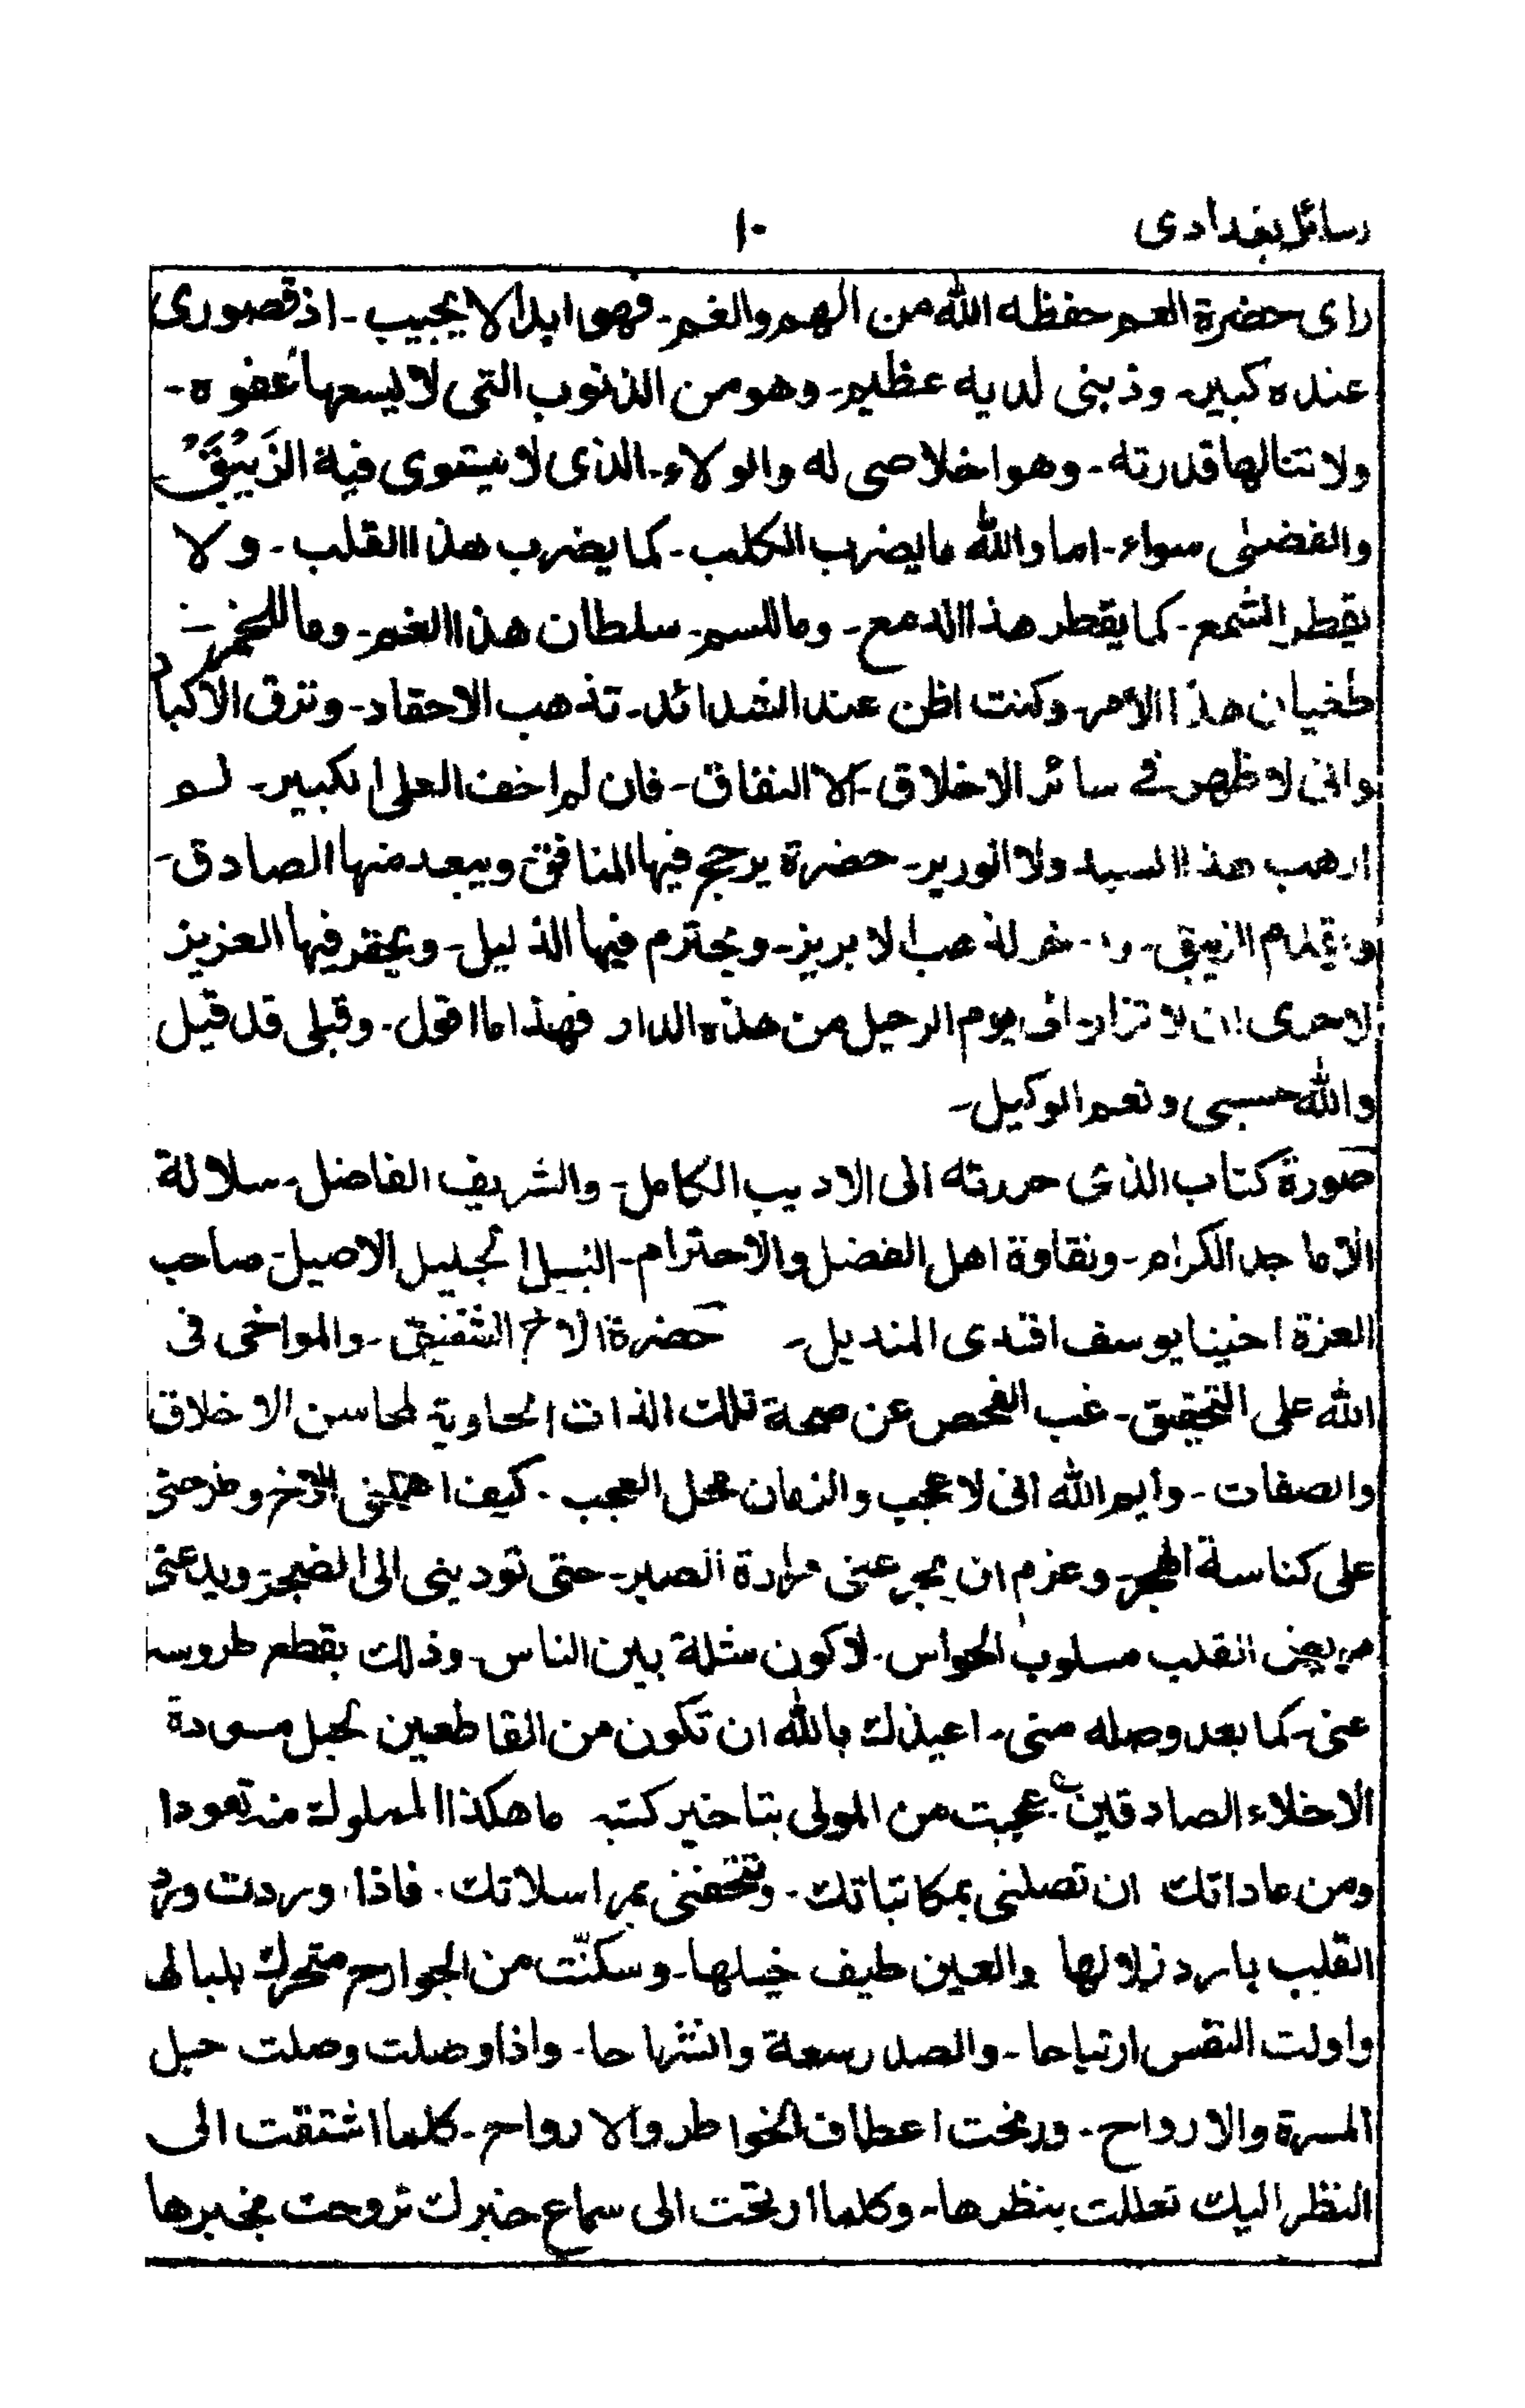 رسائل بغدادی
١٠
رای حضرة العم حفظه الله من الهم والغم ـ فهو ابدا لا یجیب ـ اذ قصوری
عنده کبیر ـ وذبنی لدیه عظیم ـ وهو من الذنوب التی لا یسعها عفوه ـ
ولا تنالها قدرته ـ وهو اخلاصی له والولاء ـ الذی لا یستوی فیه الزَیبَقُ
والفضی سواء ـ اما والله ما یضرب الکلب ـ کما یضرب هذا القلب ـ ولا
یقطر الشمع ـ کما یقطر هذا الدمع ـ وما للسم ـ سلطان هذا الغم ـ وما للخمر ـ
طغیان هذا الامر ـ وکنت اظن عند الشدائد ـ تذهب الاحقاد ـ وترق الاکباد
وانی لا ظهر فی سائر الاخلاق ـ الا النفاق ـ فان لم اخف العلی الکبیر ـ لم
ارهب هذا السید ولا الوریر ـ حضرة یرجح فیها المنافق ویبعد منها الصادق ـ
ویقدم الزیبق ـ لذهب الابریز ـ ویحترم فیها الذلیل ـ ویحقر فیها العزیز
لاحری ان لا تزار الی یوم الرحیل من هذه الدار فهذا ما اقول ـ وقبلی قد قیل
والله حسبی ونعم الوکیل ـ
صورة کتاب الذی حررته الی الادیب الکامل ـ والشریف الفاضل ـ سلالة
الاماجد الکرام ـ ونقاوة اهل الفضل والاحترام ـ النبیل الجلیل الاصیل ـ صاحب
العزة اخینا یوسف افندی المندیل ـ حضرة الاخ الشفیق ـ والمواخی فی
الله علی التحقیق ـ غب الفحص عن صحة تلک الذات الحاویة لمحاسن الاخلاق
والصفات ـ وایم الله انی لا عجب والزمان محل العجب ـ کیف اهملنی الاخ وطرحنی
علی کناسة الهجر ـ وعزم ان یجرعنی مرارة الصبر ـ حتی تودینی الی الضجر ـ ویدعنی
مریض القلب مسلوب الحواس ـ لاکون مثلة بین الناس ـ وذلک بقطع طروسه
عنی ـ کما بعد وصله منی ـ اعیذک بالله ان تکون من القاطعین لحبل مودة
الاخلاء الصادقین ـ عجبت من المولی بتاخیر کتبه ما هکذا المملوک منه تعودا
ومن عاداتک ان تصلنی بمکاتباتک ـ وتتحفنی بمراسلاتک ـ فاذا وردت ورد
القلب بارد زلالها والعین طیف خیلها ـ وسکنّت من الجوارح متحرک بلبالها
واولت النفس ارتیاحا ـ والصدر سعة وانشراحا ـ واذا وصلت وصلت حبل
المسرة والارواح ـ ورنحت اعطاف الخواطر والارواح ـ کلما اشتقت الی
النظر الیک تعللت بنظرها ـ وکلما ارتحت الی سماع خبرک تروحت بخبرها